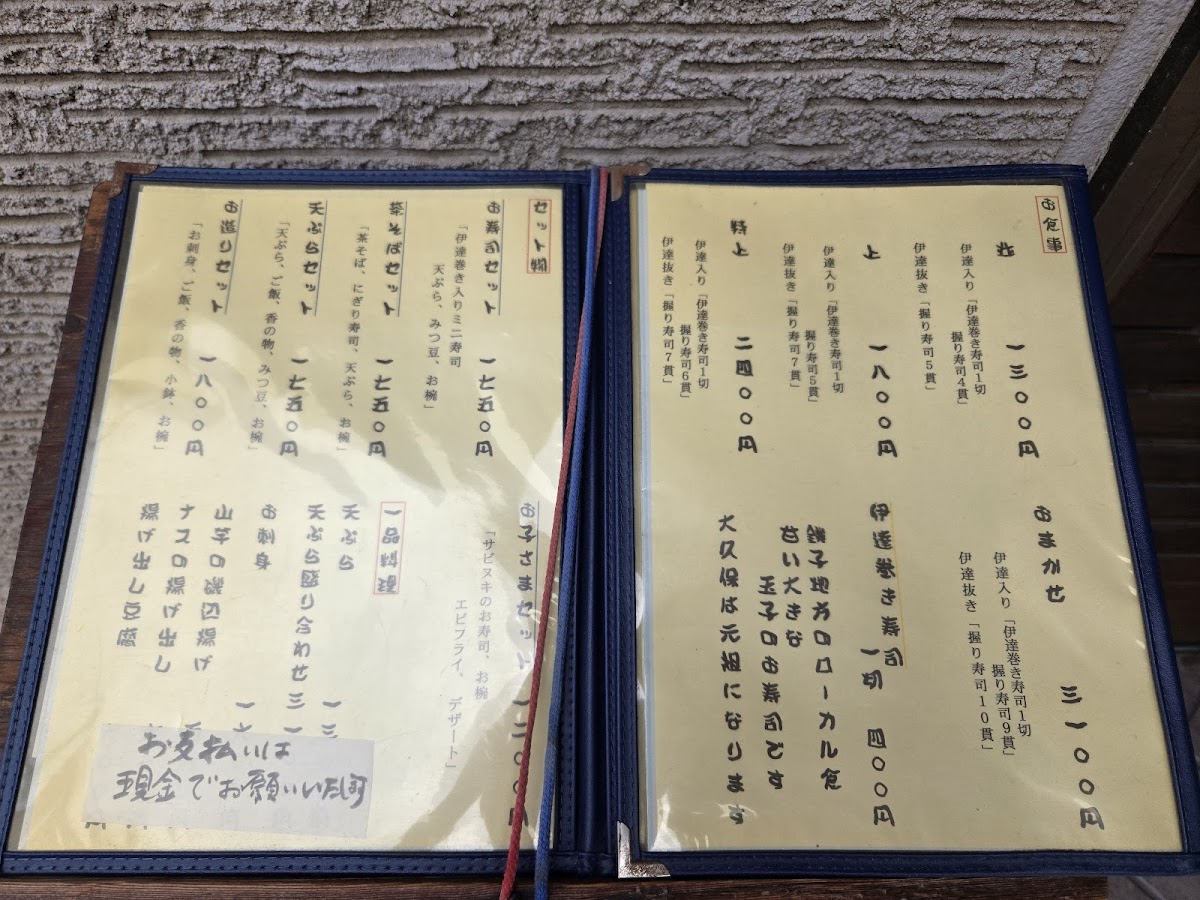 お食事
並 一三〇〇円
伊達入り「伊達巻き寿司1切
握り寿司4貫」
伊達抜き「握り寿司5貫」
上 一八〇〇円
伊達入り「伊達巻き寿司1切
握り寿司5貫」
伊達抜き「握り寿司7貫」
特上 二四〇〇円
伊達入り「伊達巻き寿司1切
握り寿司6貫」
伊達抜き「握り寿司7貫」
おまかせ 三一〇〇円
伊達入り「伊達巻き寿司1切
握り寿司9貫」
伊達抜き「握り寿司10貫」
伊達巻き寿司
一切 四〇〇円
銚子地方のローカル食
甘い大きな
玉子のお寿司です
大久保は元祖になります
セット物
お寿司セット 一七五〇円
「伊達巻き入りミニ寿司
天ぷら、みつ豆、お椀」
茶そばセット 一七五〇円
「茶そば、にぎり寿司、天ぷら、お椀」
天ぷらセット 一七五〇円
「天ぷら、ご飯、香の物、みつ豆、お椀」
お造りセット 一八〇〇円
「お刺身、ご飯、香の物、小鉢、お椀」
お子さまセット 一二〇〇円
「サビヌキのお寿司、お椀
エビフライ、デザート」
一品料理
天ぷら
天ぷら盛り合わせ
お刺身
山芋の磯辺揚げ
ナスの揚げ出し
揚げ出し豆腐
お支払いは
現金でお願いいたします